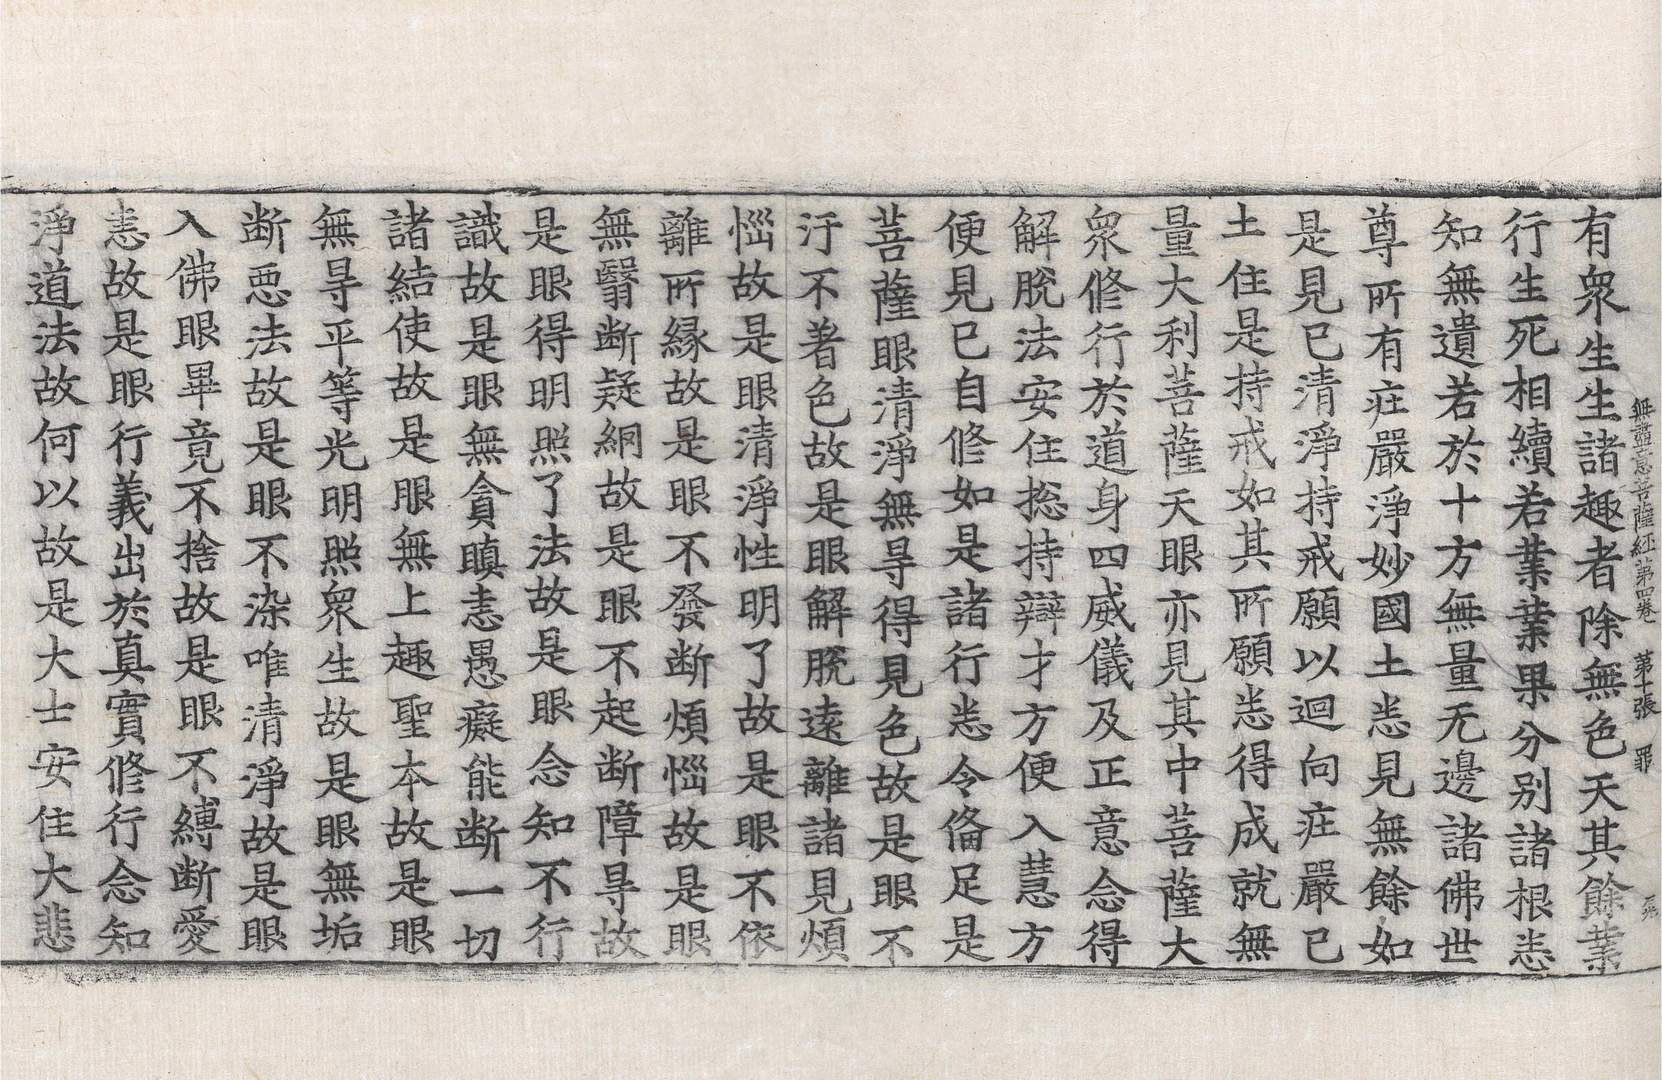 無盡意菩薩経第四卷　第一張　罪
有衆生生諸趣者除無色天其餘業
行生死相續若業業果分别諸根悉
知無遺若於十方無量无邊諸佛世
尊所有庄嚴淨妙國土悉見無餘如
是見已清淨持戒願以迴向庄嚴已
土住是持戒如其所願悉得成就無
量大利菩薩天眼亦見其中菩薩大
衆修行於道身四威儀及正意念得
解脫法安住捴持辯才方便入慧方
便見已自修如是諸行悉令俻足是
菩薩眼清淨無㝵得見色故是眼不
汙不著色故是眼解脫遠離諸見煩
惱故是眼清淨性明了故是眼不依
離所縁故是眼不發断煩惱故是眼
無翳断疑網故是眼不起断障㝵故
是眼得明照了法故是眼念知不行
識故是眼無貪瞋恚愚癡能断一切
諸結使故是眼無上趣聖本故是眼
無㝵平等光明照衆生故是眼無垢
断惡法故是眼不染唯清淨故是眼
入佛眼畢竟不捨故是眼不縛断愛
恚故是眼行義出於真實修行念知
淨道法故何以故是大士安住大悲